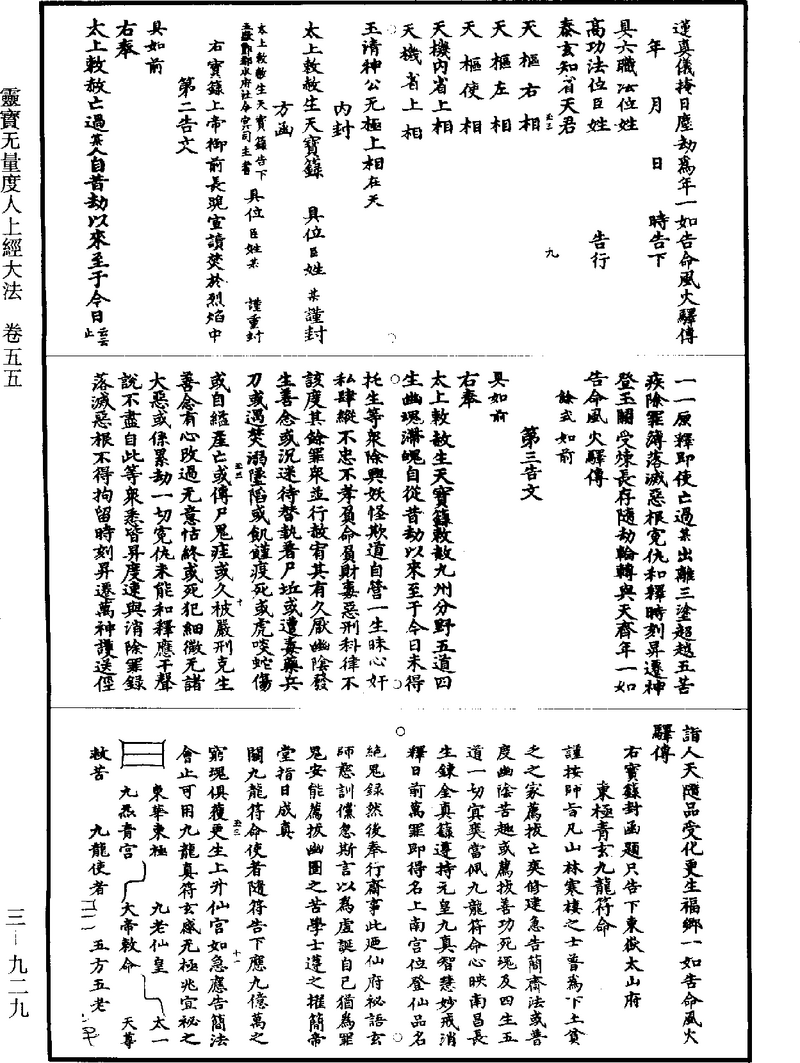 謹真儀掩日塵劫為年一如告命風火驛傳
年　月　日　時告下
具六職法位姓
高功法位臣姓　告行
泰玄知省天君
天樞右相
天樞左相
天樞使相
天樞內省上相
天機省上相
玉清神公无極上相在天
內封
太上敕赦生天寶籙　具位臣姓某謹封
方函
太上敕赦生天寶籙告下
具位臣姓某　謹重封
右寶籙上帝御前長跪宣讀焚於烈焰中
第二告文
具如前
右奉
太上敕赦亡過某人自昔劫以來至于今日云云止
一一原釋即使亡過某出離三塗超越五苦
疾除罪簿落滅惡根冤仇和釋時刻昇遷神
登玉闕受煉長存隨劫輪轉與天齊年一如
告命風火驛傳
餘式如前
第三告文
具如前
右奉
太上敕赦生天寶籙敕赦九州分野五道四
生幽魂滯魄自從昔劫以來至于今日未得
托生等眾除興妖怪欺道自營一生昧心奸
私肆縱不忠不孝負命負財毒惡刑科律不
該度其餘罪眾並行赦宥其有久厭幽陰發
生善念或沉迷待替執著尸坵或遭毒藥兵
刀或遇焚溺墜陷或飢饉疫死或虎啖蛇傷
或自縊產亡或傳尸鬼疰或久被嚴刑克生
善念有心改過无意怙終或死犯細微无諸
大惡或係累劫一切冤仇未能和釋應干聲
說不盡自此等眾悉皆昇度速與消除罪錄
落滅惡根不得拘留時刻昇遷萬神護送徑
詣人天隨品受化更生福鄉一如告命風火
驛傳
右寶籙封函題只告下東嶽太山府
東極青玄九龍符命
謹按師旨凡山林寒棲之士普為下土貧
乏之家薦拔亡爽修建急告簡齋法或普
度幽陰苦趣或薦拔善功死魂及四生五
道一切冥爽當佩九龍符命心映南昌長
生鍊金真籙遵持元皇九真智慧妙戒消
釋日前萬罪即得名上南宮位登仙品名
絕鬼錄然後奉行齋事此迺仙府祕語玄
師慈訓儻忽斯言以為虛誕自己猶為罪
鬼安能薦拔幽圖之苦學士遵之擢簡帝
堂指日成真
關九龍符命使者隨符告下應九億萬之
窮魂俱獲更生上升仙宮如急應告簡法
會止可用九龍真符玄感无極兆宜祕之
東華東極　九老仙皇　太一
九炁青宮　大帝敕命　天尊
救苦　九龍使者　五方五老
靈寶无量度人上經大法　卷五五
三—九二九